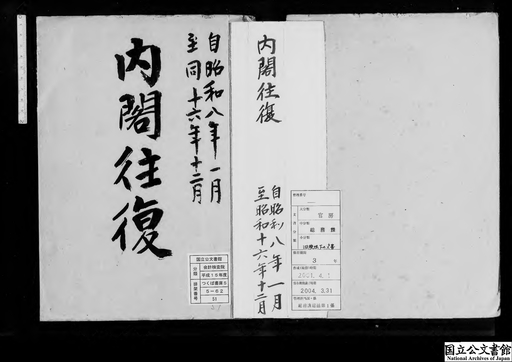 自昭和八年一月
至同十六年十二月
内閣往復
内閣往復
自昭和八年一月
至昭和十六年十二月
国立公文書館
分類
会計検査院
平成15年度
つくば書庫5
5-62
排架番号
51
官房
総務課
3年
2004.3.31
国立公文書館
National Archives of Japan